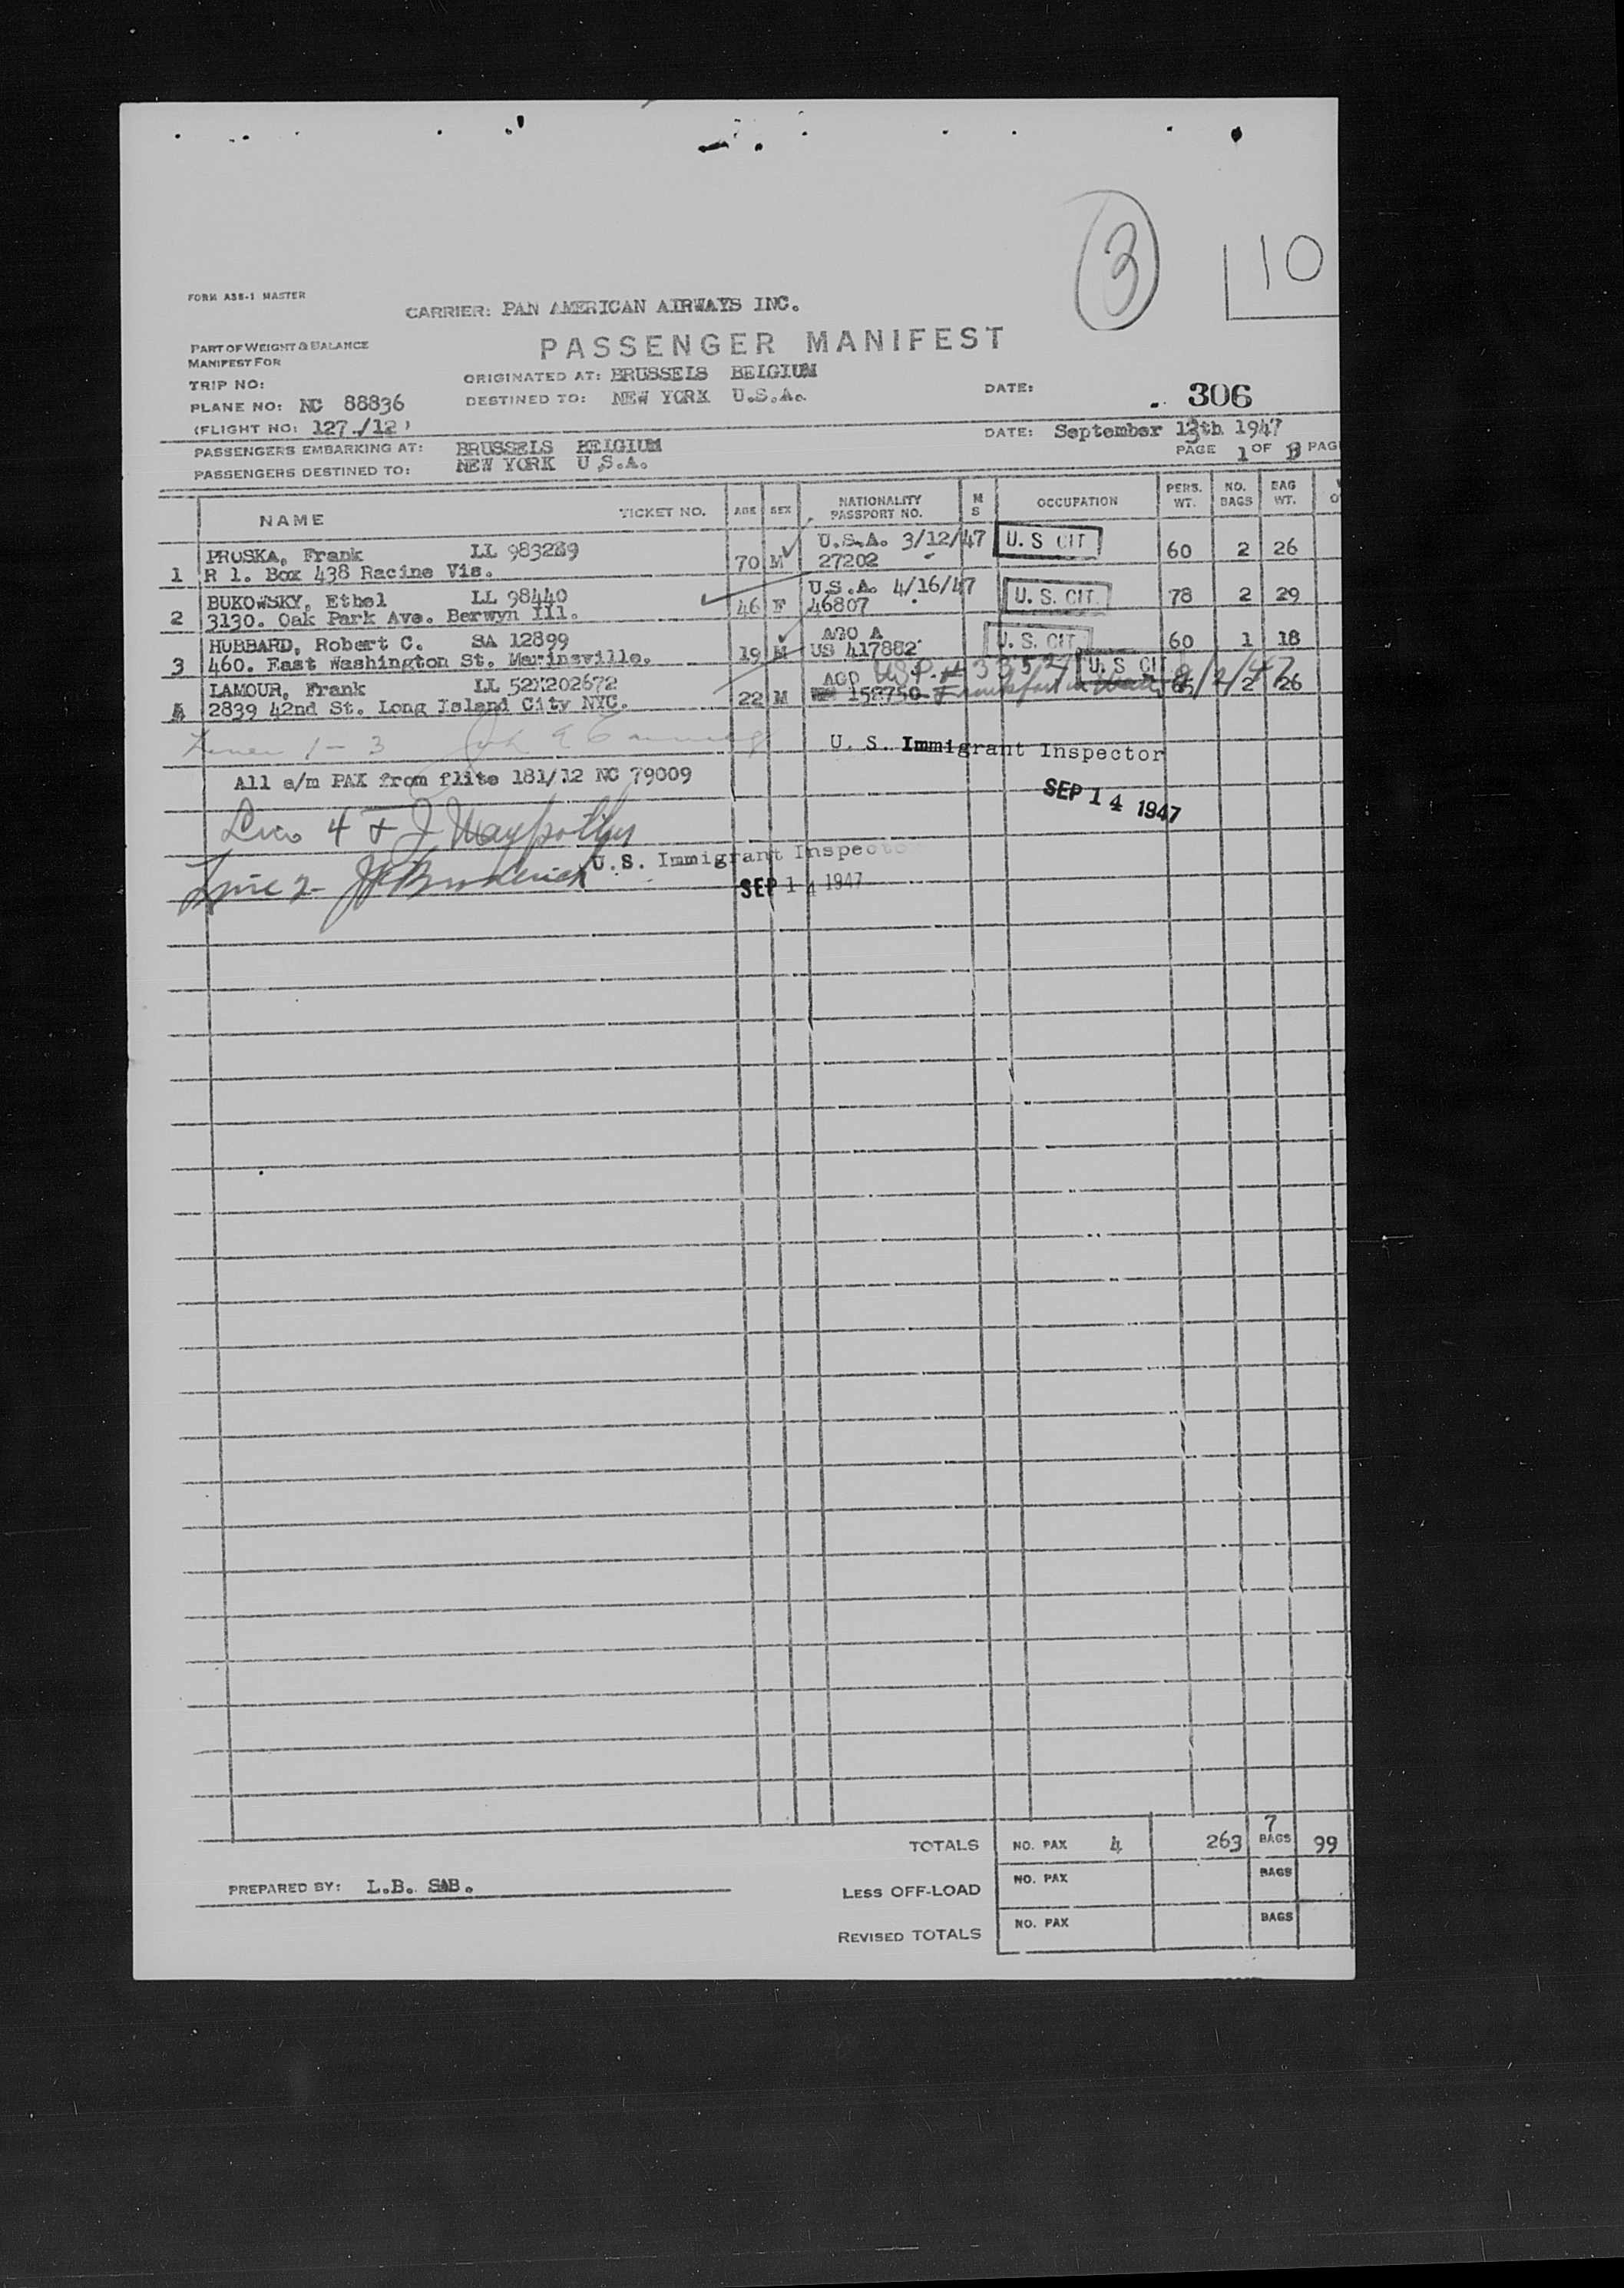 3
10
FORM ASB-1 MASTER
CARRIER: PAN AMERICAN AIRWAYS INC.
PART OF WEIGHT & BALANCE
MANIFEST FOR
PASSENGER MANIFEST
TRIP NO:
ORIGINATED AT: BRUSSELS BELGIUM
DATE:
306
PLANE NO: NC 88836
DESTINED TO: NEW YORK U.S.A.
(FLIGHT NO: 127./12)
DATE: September 13th 1947
PASSENGERS EMBARKING AT: BRUSSELS BELGIUM
PAGE 1 OF PAG
PASSENGERS DESTINED TO: NEW YORK U.S.A.
NAME TICKET NO. AGE SEX NATIONALITY PASSPORT NO. M S OCCUPATION PERS. WT. NO. BAGS BAG WT.
PRUSKA, Frank LL 983289 U.S.A. 3/12/47 U. S CIT
1 R 1. Box 438 Racine Vis. 70 M 27202 60 2 26
BUKOWSKY, Ethel LL 98440 U.S.A. 4/16/47 U. S. CIT.
2 3130. Oak Park Ave. Berwyn Ill. 46 F 46807 78 2 29
HUBBARD, Robert C. SA 12899 AGO A U. S. CIT
3 460. East Washington St. Marinsville. 19 M US 417882 60 1 18
LAMOUR, Frank LL 52X202672 AGO U.S.P. # U. S CIT
2839 42nd St. Long Island City NYC. 22 M 158750 Frankfort 2 26
1 - 3
U. S. Immigrant Inspector
All a/m PAX from flite 181/12 NC 79009
SEP 14 1947
4
U. S. Immigrant Inspector
Line 2
SEP 14 1947
TOTALS NO. PAX 4 263 7 BAGS 99
PREPARED BY: L.B. SAB.
LESS OFF-LOAD NO. PAX BAGS
REVISED TOTALS NO. PAX BAGS